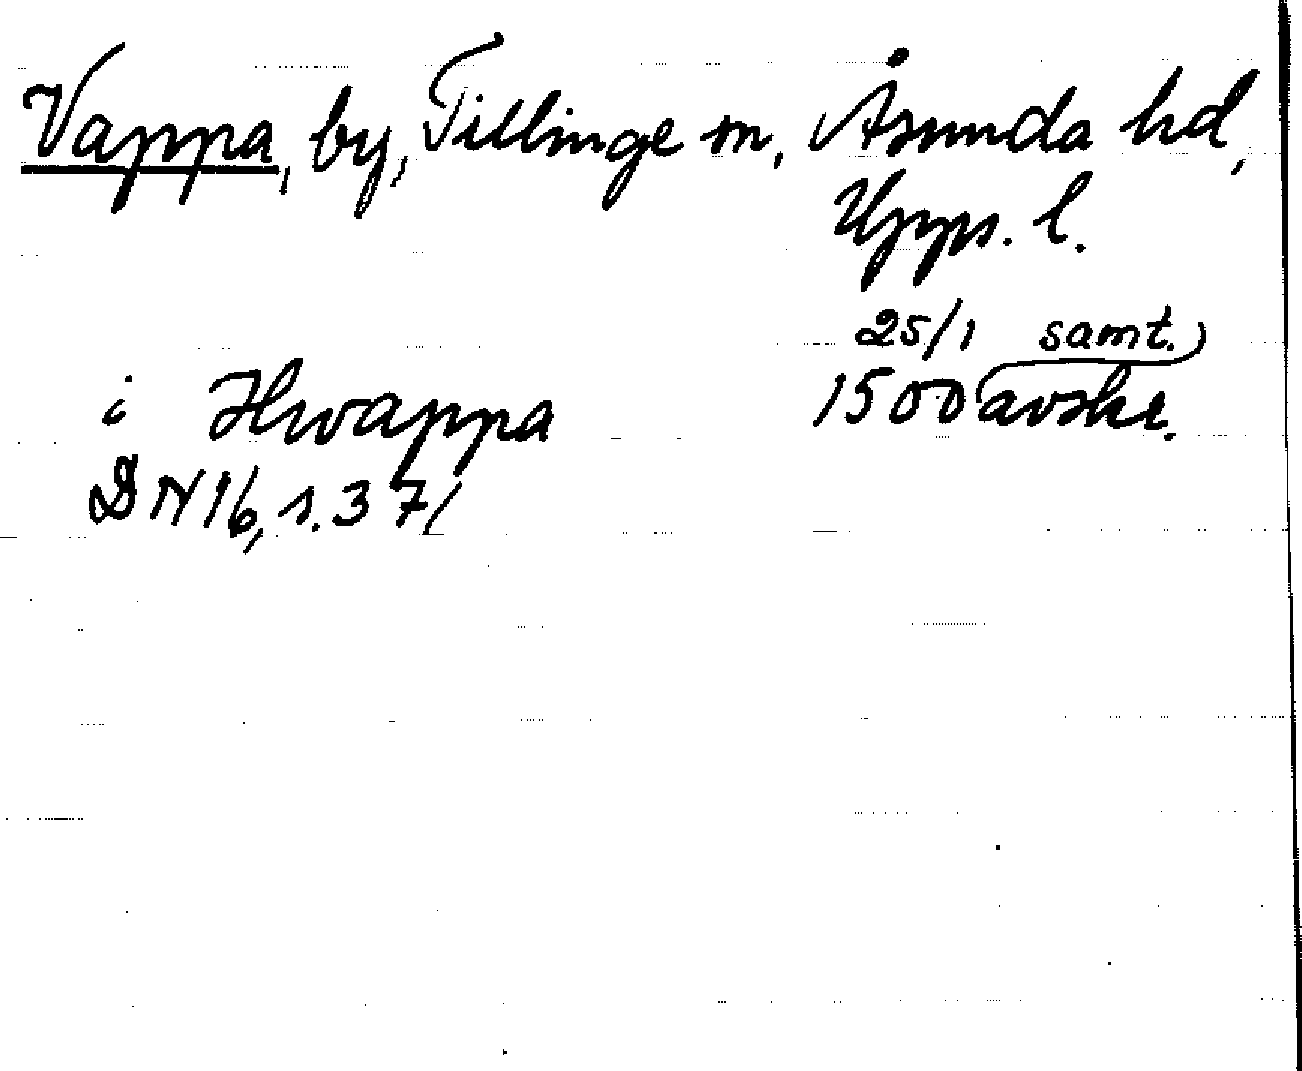 Vappa, by, Tillinge sn, Åsunda hd,
Upps. l.
25/1 samt.
i Hwappa 1500 avskr.
DN 16, s. 371